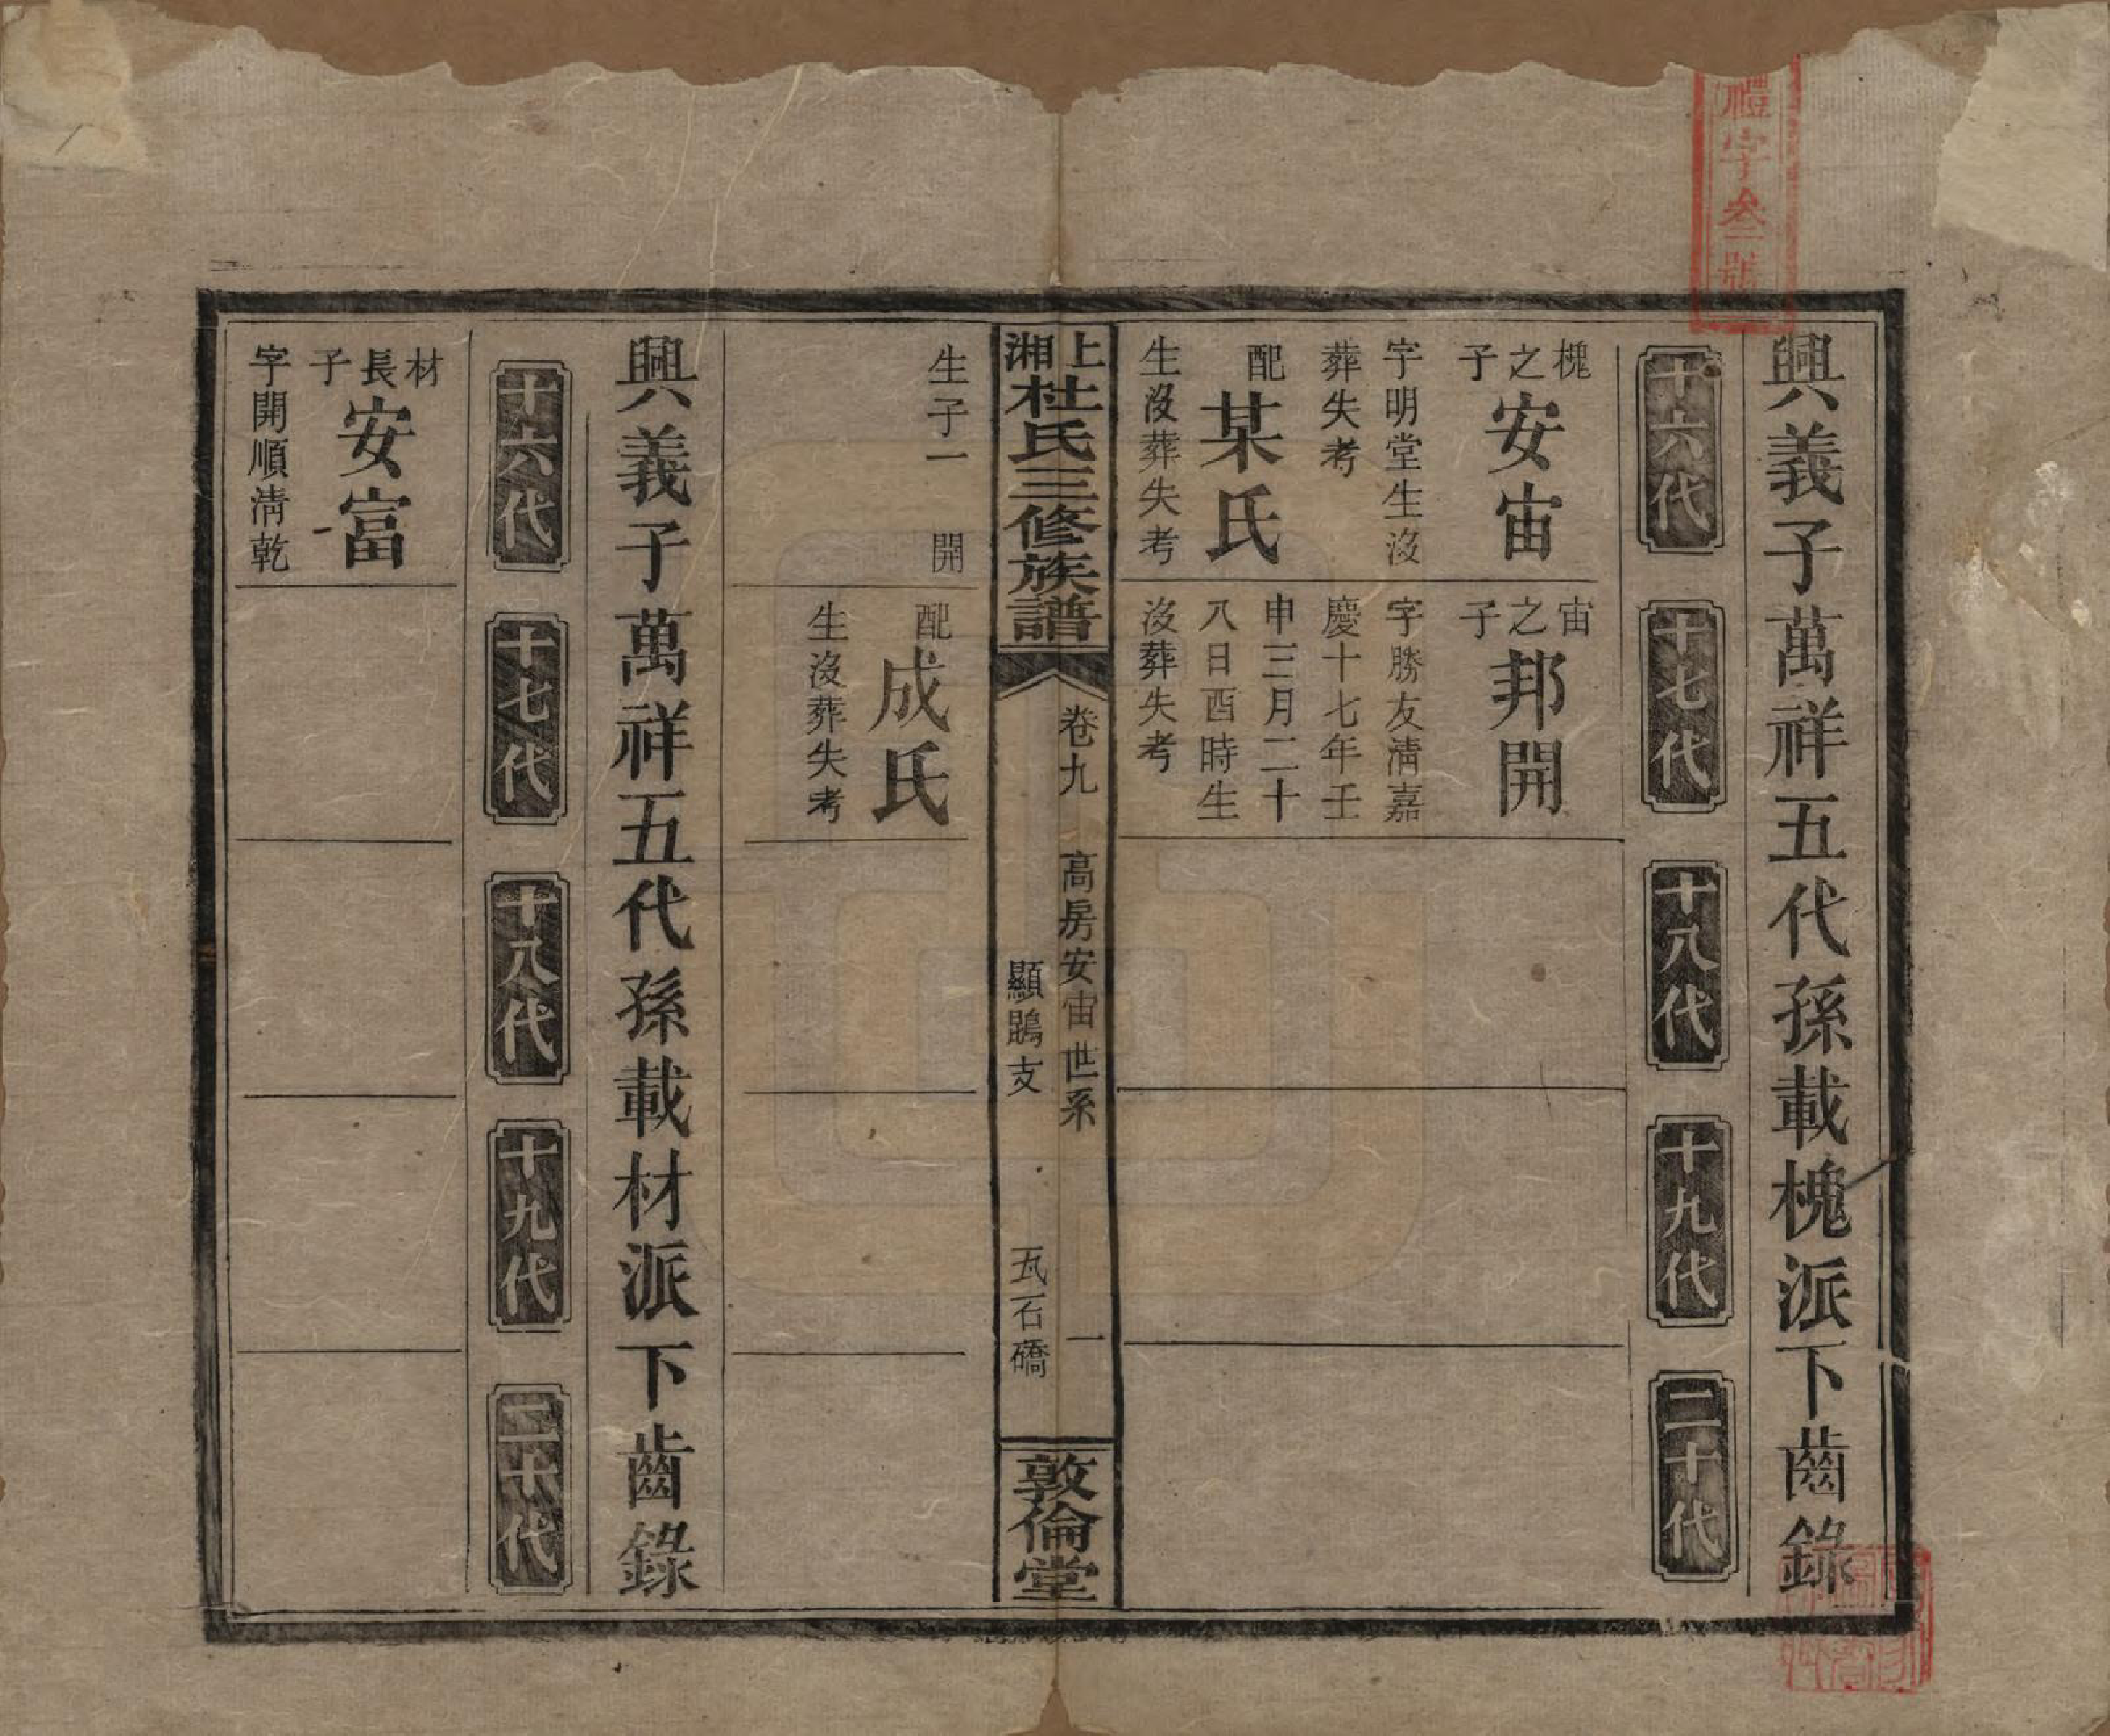 禮字叁號
興義子萬祥五代孫載槐派下齒錄
十六代
十七代
十八代
十九代
二十代
槐之子
安宙
字明堂生沒
葬失考
配
某氏
生沒葬失考
宙之子
邦開
字勝友清嘉
慶十七年壬
申三月二十
八日酉時生
沒葬失考
上湘杜氏三修族譜
卷九
高房安宙世系
顯鵾支
一
瓦石礄
敦倫堂
生子一 開
配
成氏
生沒葬失考
興義子萬祥五代孫載材派下齒錄
十六代
十七代
十八代
十九代
二十代
材長子
安富
字開順清乾